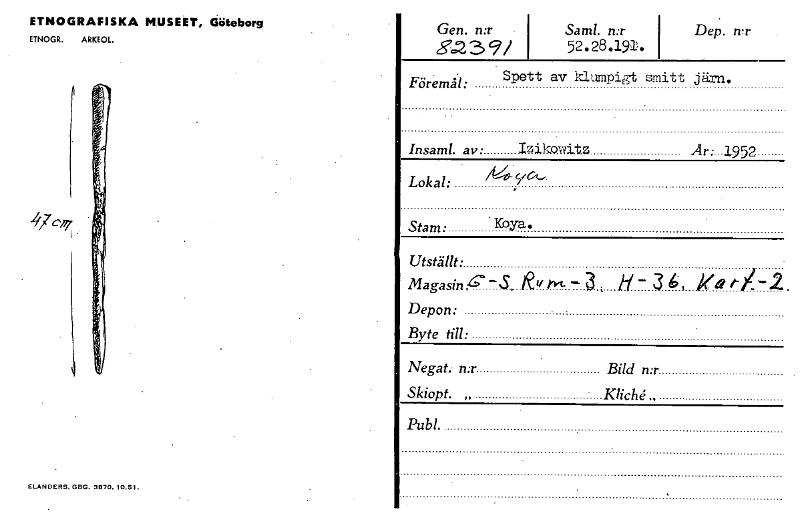 ETNOGRAFISKA MUSEET, Göteborg
ETNOGR. ARKEOL.
47 cm
ELANDERS. GBG. 3870, 10.51.
Gen. n:r Saml. n:r Dep. n:r
82391 52.28.191.
Föremål: Spett av klumpigt smitt järn.
Insaml. av: Izikowitz År: 1952
Lokal: Koya
Stam: Koya.
Utställt:
Magasin: G-S. Rum-3. H-36. Kart.-2.
Depon:
Byte till:
Negat. n:r Bild n:r
Skiopt. „ Kliché „
Publ.